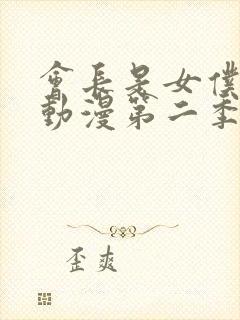 會長是女僕
動漫第二季
歪爽